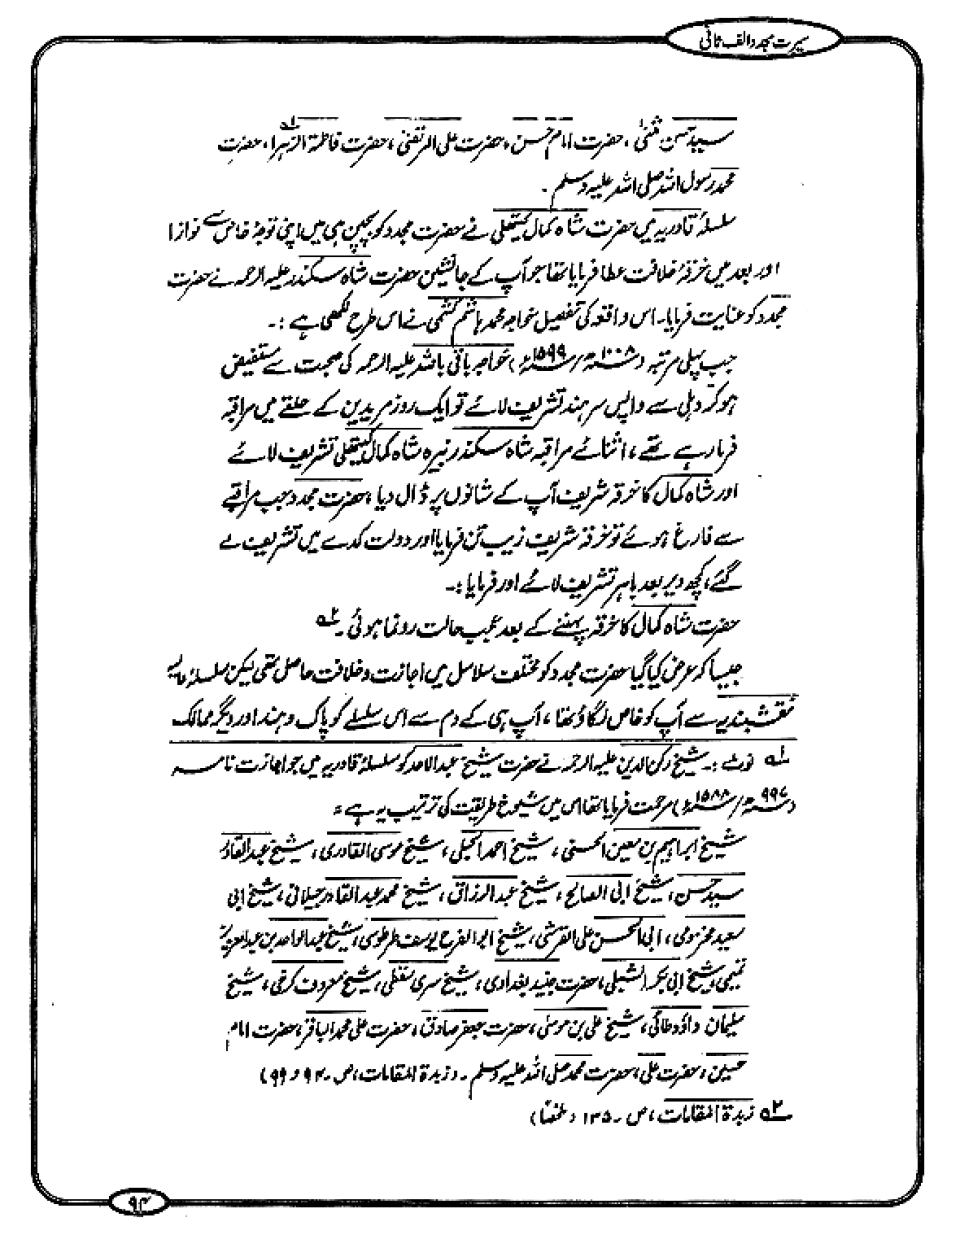 سیرت مجدد الف ثانی
سید حسن مثنیٰ ، حضرت امام حسن ، حضرت علی المرتضیٰ ، حضرت فاطمۃ الزہرا ؓ۱؎، حضرت
محمد رسول اللہ صلی اللہ علیہ وسلم ۔
سلسلۂ قادریہ میں حضرت شاہ کمال کیتھلی نے حضرت مجدد کو بچپن ہی میں اپنی توجۂ خاص سے نوازا
اور بعد میں خرقۂ خلافت عطا فرمایا تھا جو آپ کے جانشین حضرت شاہ سکندر علیہ الرحمہ نے حضرت
مجدد کو عنایت فرمایا۔ اس واقعہ کی تفصیل خواجہ محمد ہاشم کشمی نے اس طرح لکھی ہے :۔
جب پہلی مرتبہ (۱۰۰۸ھ/۱۵۹۹ء) خواجہ باقی باللہ علیہ الرحمہ کی صحبت سے مستفیض
ہو کر دہلی سے واپس سرہند تشریف لائے تو ایک روز مریدین کے حلقے میں مراقبہ
فرما رہے تھے ، اثنائے مراقبہ شاہ سکندر نبیرہ شاہ کمال کیتھلی تشریف لائے
اور شاہ کمال کا خرقہ شریف آپ کے شانوں پر ڈال دیا ، حضرت مجدد جب مراقبے
سے فارغ ہوئے تو خرقہ شریف زیب تن فرمایا اور دولت کدے میں تشریف لے
گئے ، کچھ دیر بعد باہر تشریف لائے اور فرمایا :۔
حضرت شاہ کمال کا خرقہ پہننے کے بعد عجب حالت رونما ہوئی ۔۲؎
جیسا کہ عرض کیا گیا حضرت مجدد کو مختلف سلاسل میں اجازت و خلافت حاصل تھی لیکن سلسلۂ عالیہ
نقشبندیہ سے آپ کو خاص لگاؤ تھا ، آپ ہی کے دم سے اس سلسلے کو پاک و ہند اور دیگر ممالک
۱؎ نوٹ :۔ شیخ رکن الدین علیہ الرحمہ نے حضرت شیخ عبدالاحد کو سلسلۂ قادریہ میں جو اجازت نامہ
(۹۹۷ھ/۱۵۸۸ء) مرحمت فرمایا تھا اس میں شیوخ طریقت کی ترتیب یہ ہے =
شیخ ابراہیم بن معین الحسنی ، شیخ احمد الجیلی ، شیخ موسی القادری ، شیخ عبدالقادر
سید حسن ، شیخ ابی الصالح ، شیخ عبدالرزاق ، شیخ محمد عبدالقادر جیلانی ، شیخ ابی
سعید مخزومی ، ابی الحسن علی القرشی ، شیخ ابو الفرح یوسف طرطوسی ، شیخ عبدالواحد بن عبدالعزیز
تمیمی و شیخ ابی بکر الشبلی ، حضرت جنید بغدادی ، شیخ سری سقطی ، شیخ معروف کرخی ، شیخ
سلیمان داؤد طائی ، شیخ علی بن موسیٰ ، حضرت جعفر صادق ، حضرت علی محمد الباقر ، حضرت امام
حسین ، حضرت علی ، حضرت محمد صلی اللہ علیہ وسلم ۔ (زبدۃ المقامات ، ص ۔ ۹۴ و ۹۹)
۲؎ زبدۃ المقامات ، ص ۔ ۱۳۵ (ملخصاً)
۹۴